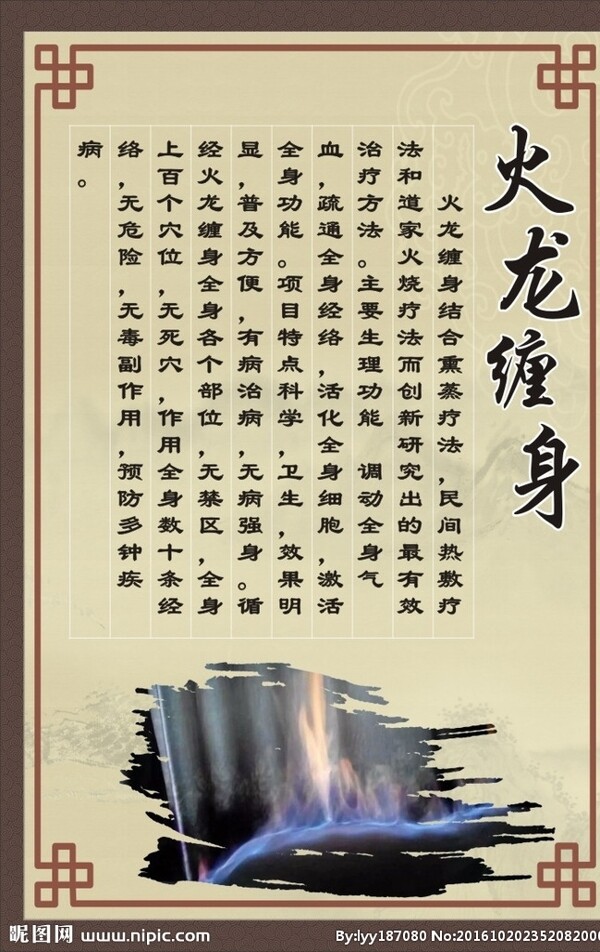 火龙缠身
火龙缠身结合熏蒸疗法,民间热敷疗
法和道家火烧疗法而创新研究出的最有效
治疗方法。主要生理功能 调动全身气
血,疏通全身经络,活化全身细胞,激活
全身功能。项目特点科学,卫生,效果明
显,普及方便,有病治病,无病强身。循
经火龙缠身全身各个部位,无禁区,全身
上百个穴位,无死穴,作用全身数十条经
络,无危险,无毒副作用,预防多钟疾
病。
昵图网 www.nipic.com
By:lyy187080 No:20161020235208200